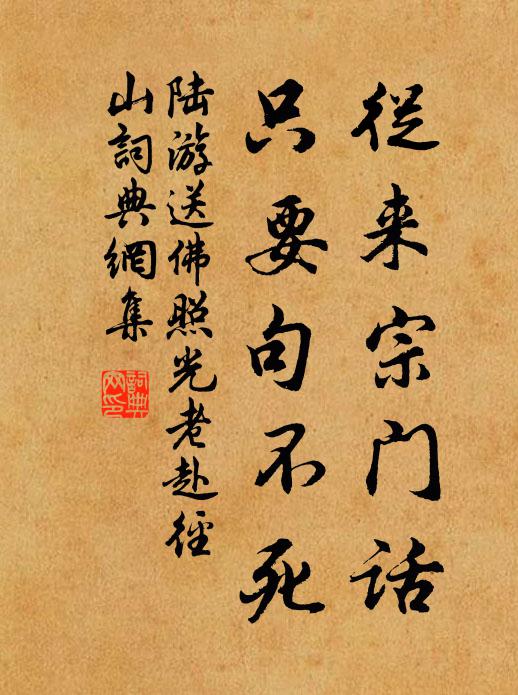 從来宗门话
只要句不死
陆游送佛照光老赴径
山詞典網集
詞典
网印